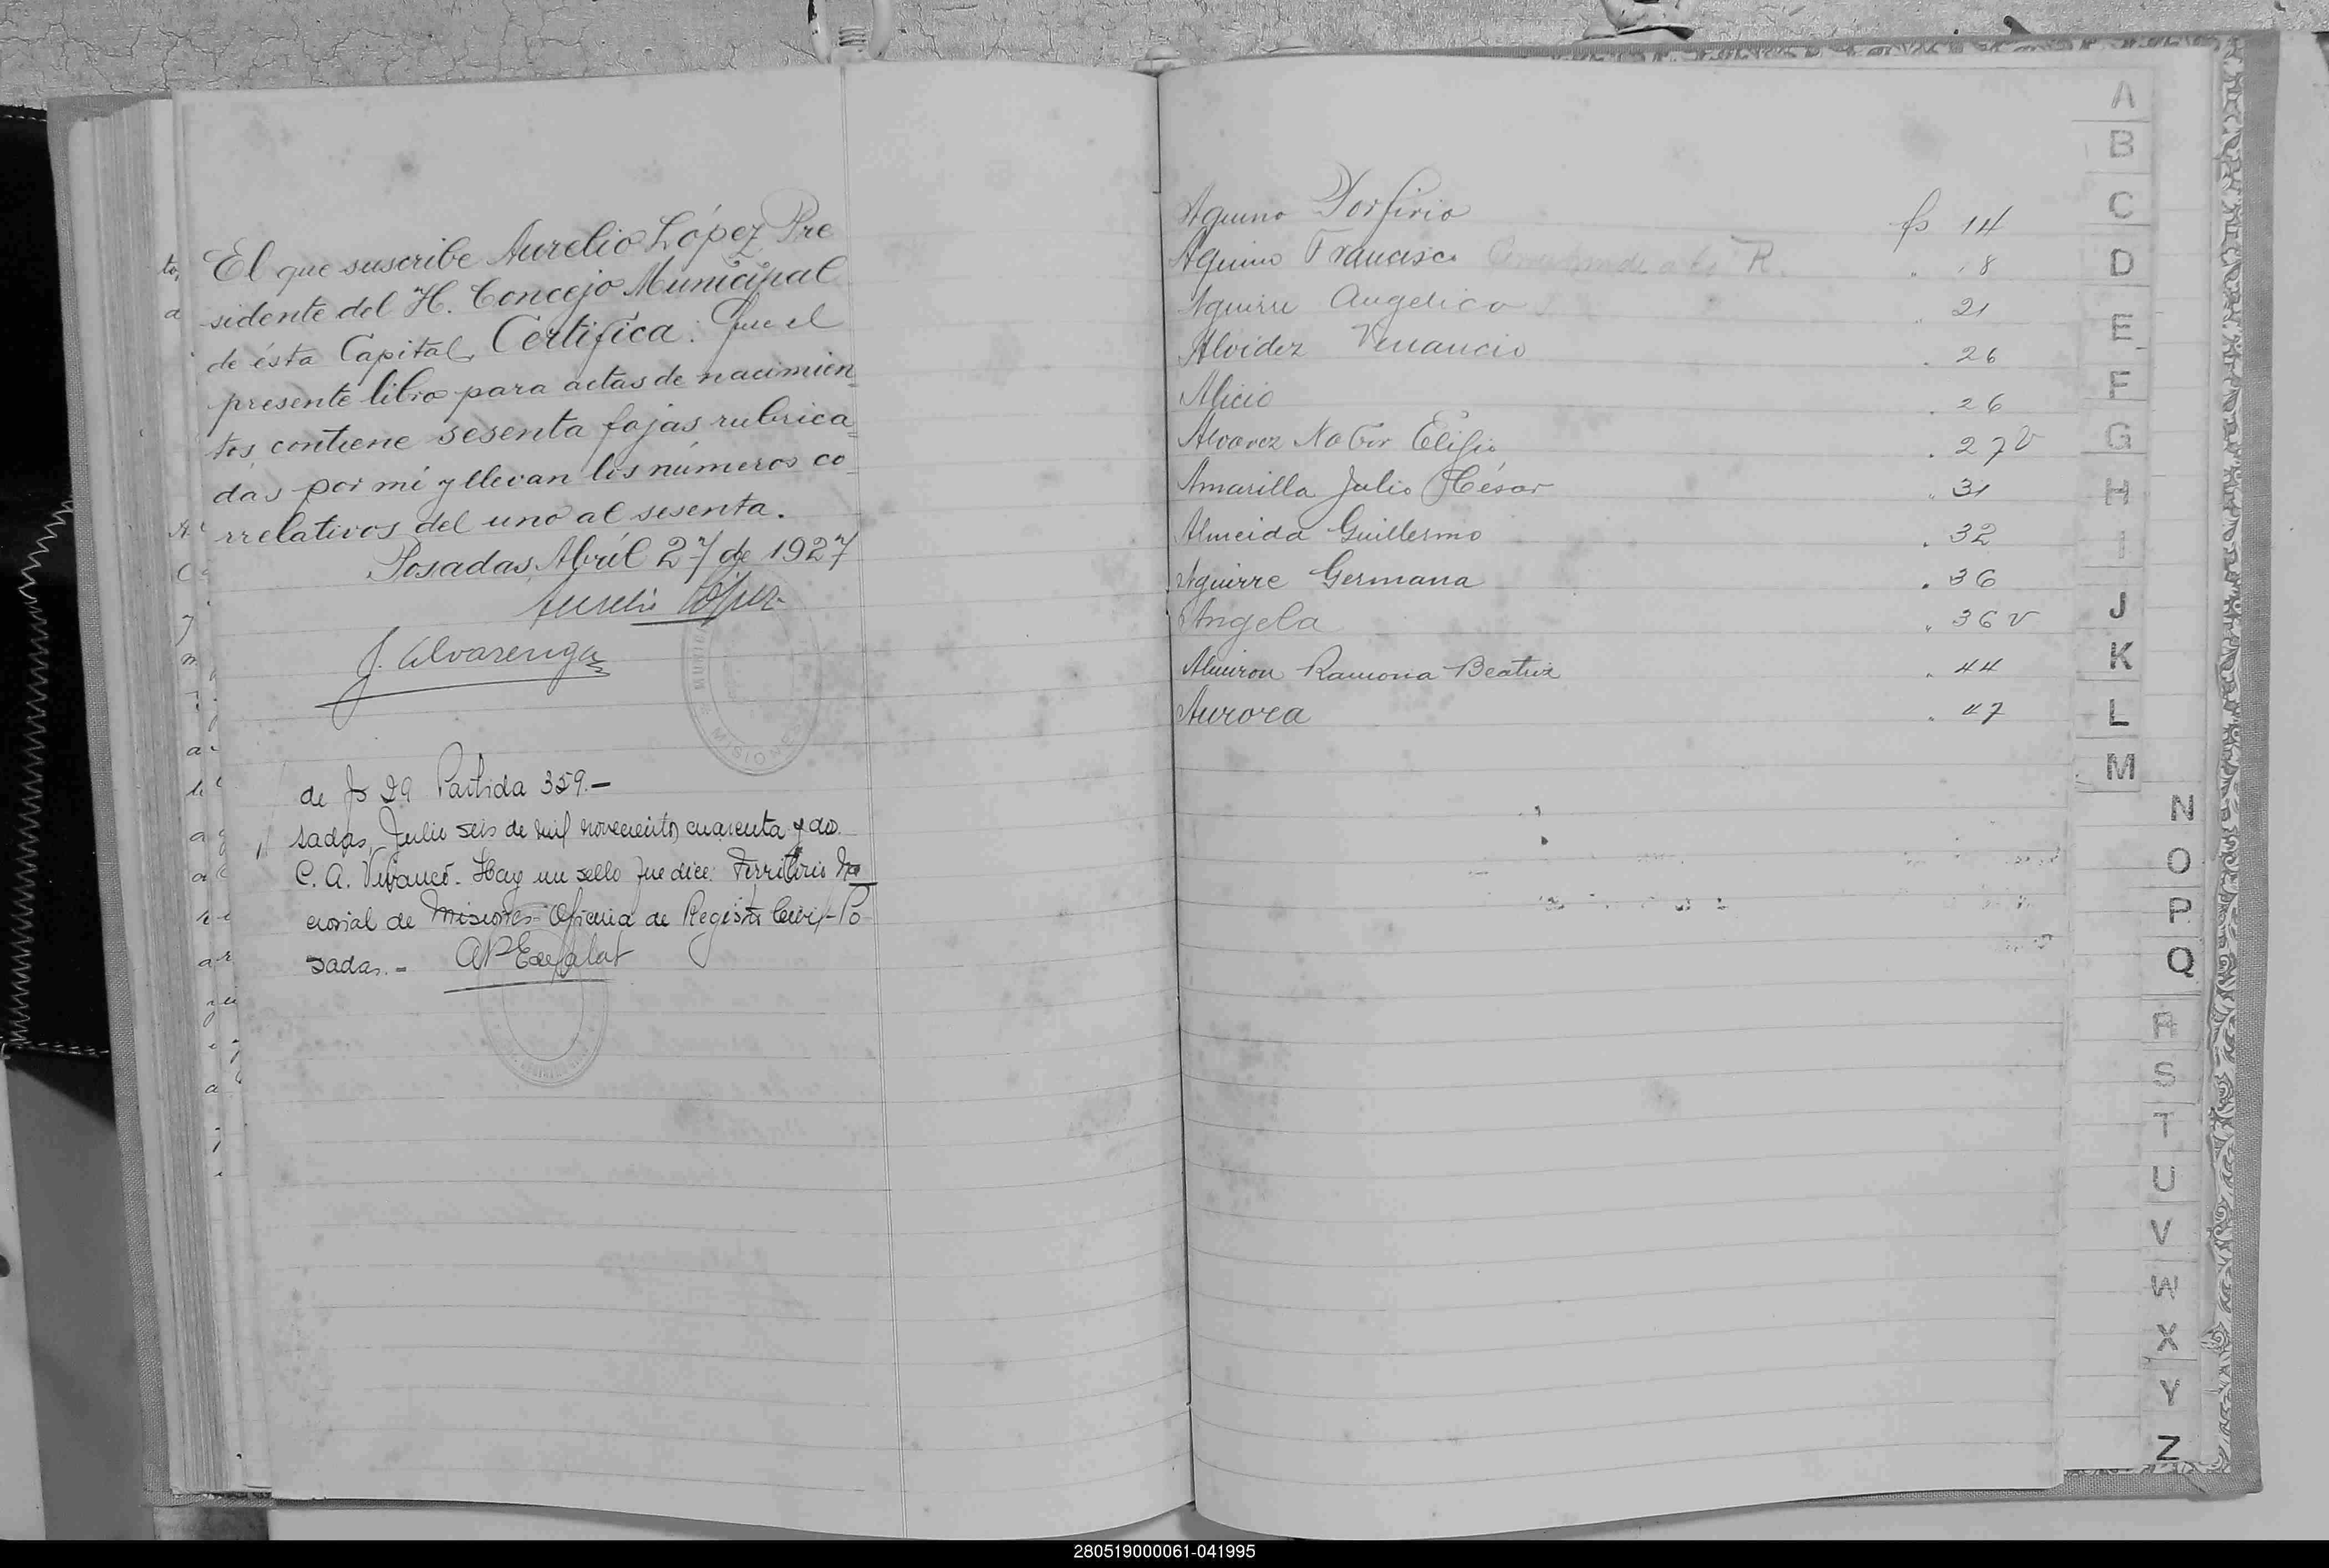 El que suscribe Aurelio López Pre
sidente del H. Concejo Municipal
de ésta Capital, Certifica: Que el
presente libro para actas de nacimien
tos contiene sesenta fojas rubrica
das por mí y llevan los números co
rrelativos del uno al sesenta.
Posadas Abríl 27 de 1927
Aurelio López
J. Alvarenga
MISIONES
de fs 29 Partida 359.-
sadas, Julio seis de mil novecientos cuarenta y dos.
C. A. Vivanco. Hay un sello que dice: Territorio Na
cional de Misiones - Oficina de Registro Civil - Po
sadas.-
Aquino Porfirio fs 14
Aquino Francisco R. 18
Aguirre Angelica 21
Alvidez Venancio 26
Alicio 26
Alvarez Nabor Eligio 27 v
Amarilla Julio César 31
Almeida Guillermo 32
Aguirre Germana 36
Angela 36 v
Almiron Ramona Beatriz 44
Aurora 47
A
B
C
D
E
F
G
H
I
J
K
L
M
N
O
P
Q
R
S
T
U
V
W
X
Y
Z
280519000061-041995